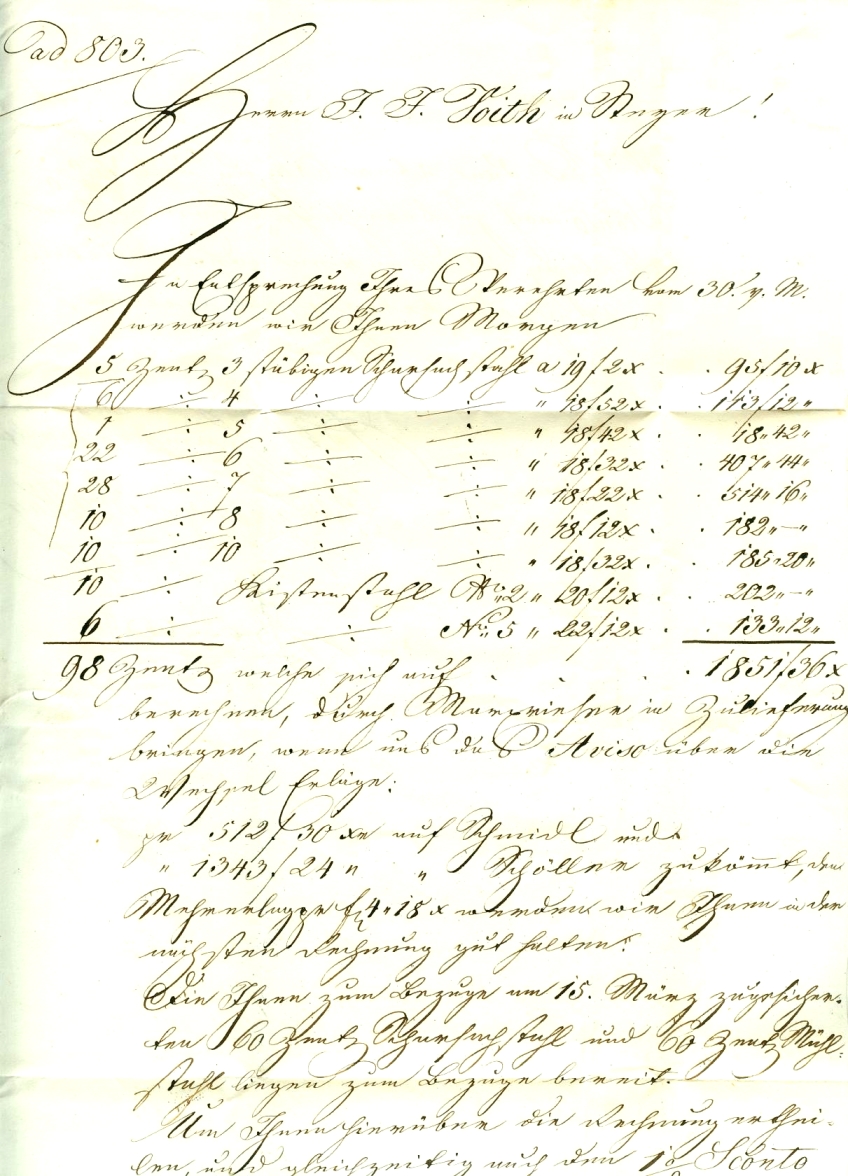 ad 803.
Herrn J. J. Voith in Steyer!
In Entsprechung Ihres Verehrten vom 30. v. M.
werden wir Ihnen Morgen
5 Zent 3 stübigen Scharsachstahl a 19f2x . . 95f10x
6 ÷ 4 ÷ ÷ " 18f52x . . 113f12"
1 ÷ 5 ÷ ÷ " 18f42x . . 18"42"
22 ÷ 6 ÷ ÷ " 18f32x . . 407"44"
28 ÷ 7 ÷ ÷ " 18f22x . . 514"16"
10 ÷ 8 ÷ ÷ " 18f12x . . 182"—"
10 ÷ 10 ÷ ÷ " 18f32x . . 185"20"
10 ÷ Kistenstahl No 2 " 20f12x . . 202"—"
6 ÷ ÷ No 5 " 22f12x . . 133"12"
98 Zent welche sich auf . . . . 1851f36x
berechnen, durch in Zulieferung
bringen, wenn uns das Aviso über die
Wechsel Erläge:
pr 512f30xr auf Schmidl und
" 1343f24" " Schöller zukömmt, den
Mehrerlag pr f 4"18x werden wir Ihnen in der
nächsten Rechnung gut halten.
Die Ihnen zum Bezuge am 15. März zugesicher-
ten 60 Zent Scharsachstahl und 60 Zent Mühl-
stahl liegen zum Bezuge bereit.
Um Ihnen hierüber die Rechnung erthei-
len, und gleichzeitig auch den Sconto